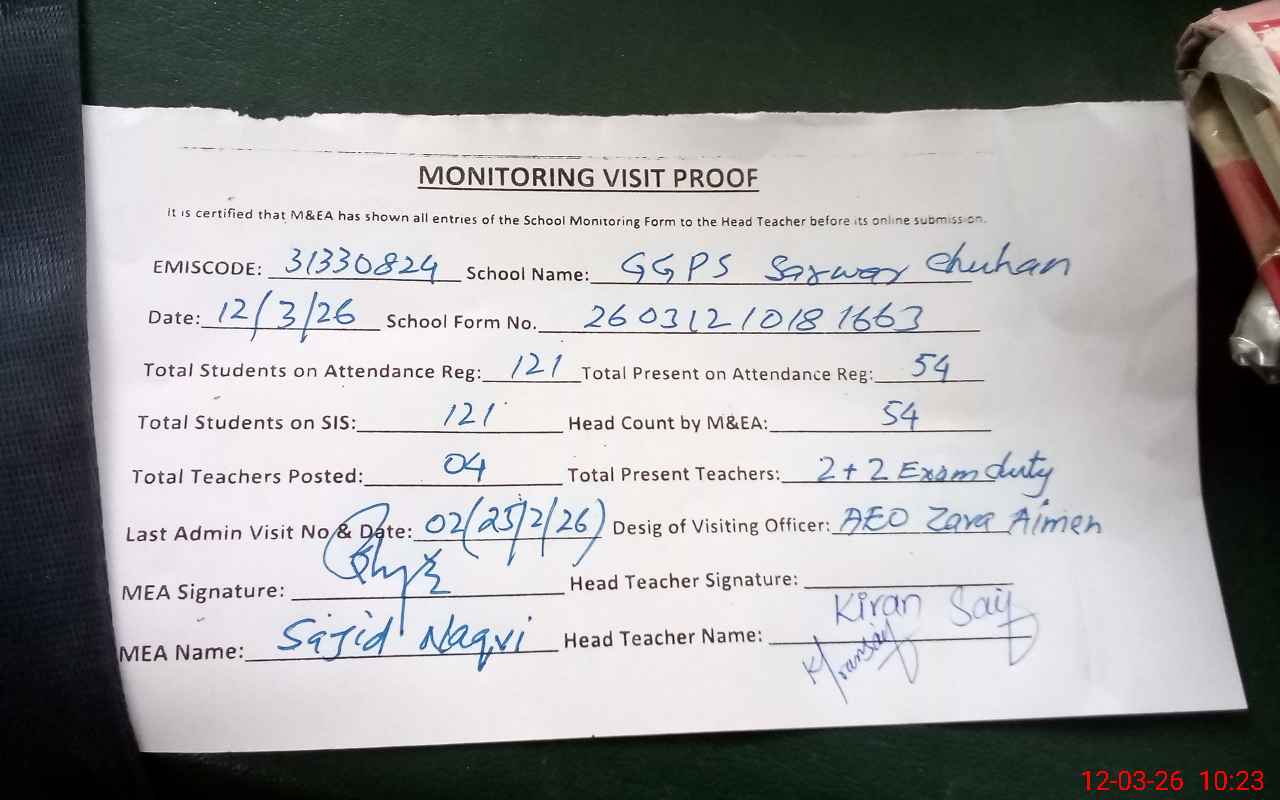 MONITORING VISIT PROOF
It is certified that M&EA has shown all entries of the School Monitoring Form to the Head Teacher before its online submission.
EMISCODE: 31330824 School Name: GGPS Sarwar Chuhan
Date: 12/3/26 School Form No. 260312101816​63
Total Students on Attendance Reg: 121 Total Present on Attendance Reg: 54
Total Students on SIS: 121 Head Count by M&EA: 54
Total Teachers Posted: 04 Total Present Teachers: 2+2 Exam duty
Last Admin Visit No & Date: 02(25/2/26) Desig of Visiting Officer: AEO Zara Aimen
MEA Signature: Head Teacher Signature:
MEA Name: Sajid Naqvi Head Teacher Name: Kiran Saif
Kiransaif
12-03-26 10:23